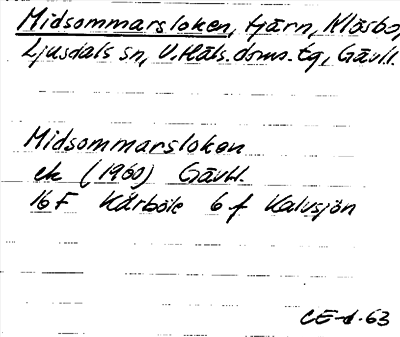 Midsommarsloken, tjärn, Klåsbo,
Ljusdals sn, V.Häls.doms.tg, Gävl.
Midsommarsloken
ek (1960) Gävl.
16 F Kårböle 6 f Kalvsjön
CE-d.63